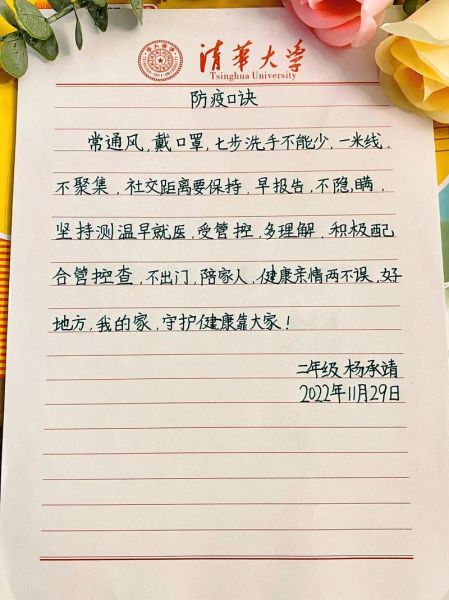 清华大学
Tsinghua University
防疫口诀
常通风,戴口罩,七步洗手不能少,一米线,
不聚集,社交距离要保持,早报告,不隐瞒,
坚持测温早就医,受管控,多理解,积极配
合管控查,不出门,陪家人,健康亲情两不误,好
地方,我的家,守护健康靠大家!
二年级 杨承靖
2022年11月29日